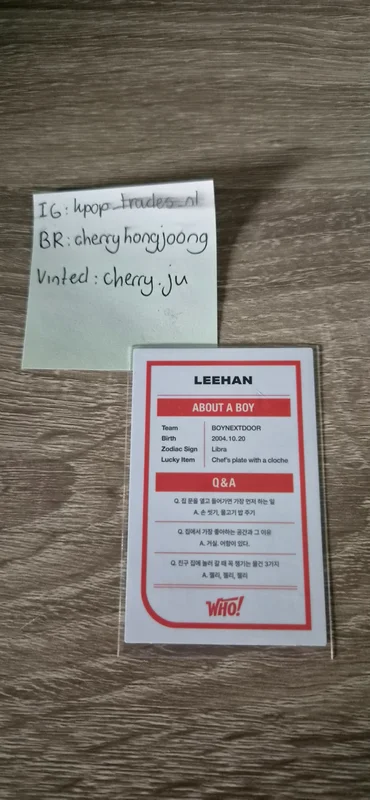 IG: kpop_trades_nl
BR: cherryhongjoong
Vinted: cherry.ju
LEEHAN
ABOUT A BOY
Team BOYNEXTDOOR
Birth 2004.10.20
Zodiac Sign Libra
Lucky Item Chef's plate with a cloche
Q&A
Q. 집 문을 열고 들어가면 가장 먼저 하는 일
A. 손 씻기, 물고기 밥 주기
Q. 집에서 가장 좋아하는 공간과 그 이유
A. 거실. 어항이 있다.
Q. 친구 집에 놀러 갈 때 꼭 챙기는 물건 3가지
A. 젤리, 젤리, 젤리
WHO!